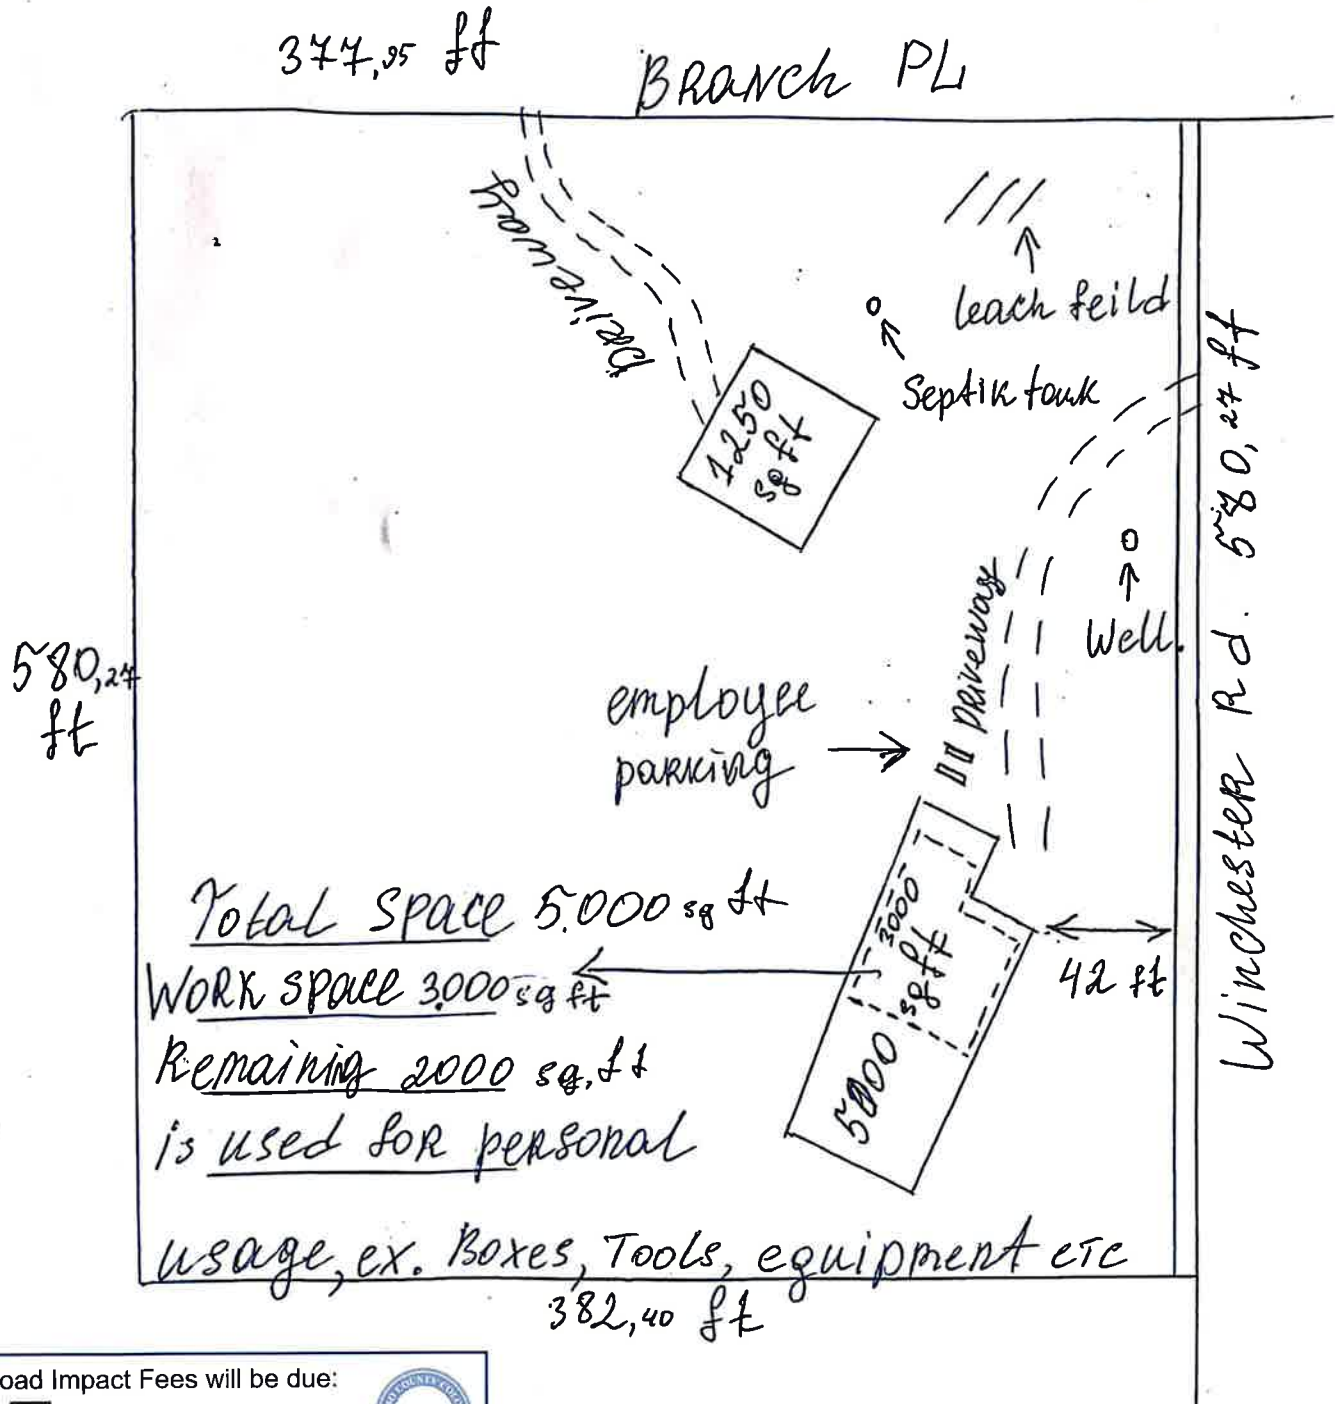 377,95 ff
BRANCh PL
Driveway
leach feild
Septik tank
1250
sq ft
580,27 ft
Winchester Rd.
Well.
Driveway
employee
parking
580,27
ft
Total Space 5.000 sq ft
Work space 3.000 sq ft
Remaining 2000 sq. ft
is used for personal
usage, ex. Boxes, Tools, equipment etc
3000
sq ft
5000
42 ft
382,40 ft
oad Impact Fees will be due: